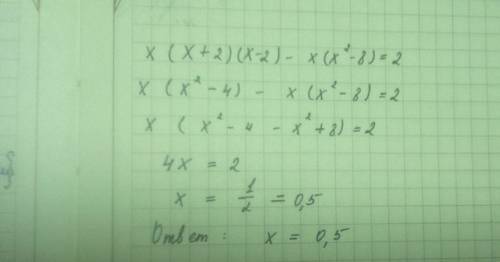 x (x+2)(x-2) - x(x²-8)=2
x (x²-4) - x(x²-8)=2
x (x²-4 - x²+8)=2
4x = 2
x = 1/2 = 0,5
Ответ: x = 0,5